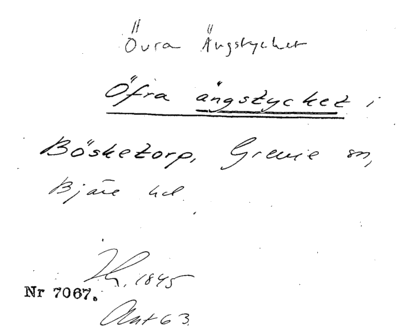 Övra Ängstycket
Öfra ängstycket i
Bösketorp, Grevie sn,
Bjäre hd.
1845
Nr 7067.
Akt 63.